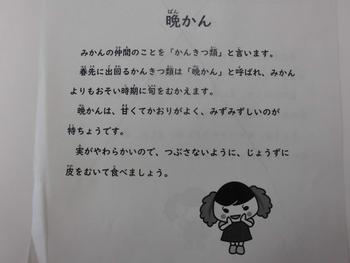 晩かん
みかんの仲間のことを「かんきつ類」と言います。
春先に出回るかんきつ類は「晩かん」と呼ばれ、みかん
よりもおそい時期に旬をむかえます。
晩かんは、甘くてかおりがよく、みずみずしいのが
特ちょうです。
実がやわらかいので、つぶさないように、じょうずに
皮をむいて食べましょう。